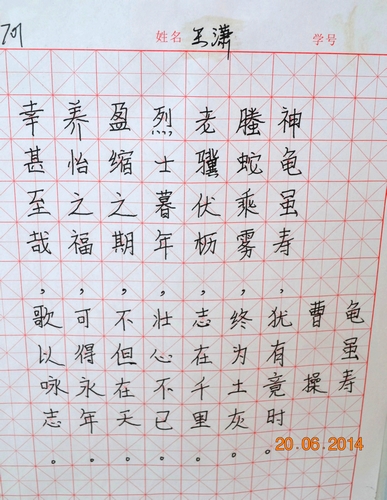 701 姓名 王潇 学号
龟虽寿
曹操
神龟虽寿，犹有竟时。
螣蛇乘雾，终为土灰。
老骥伏枥，志在千里。
烈士暮年，壮心不已。
盈缩之期，不但在天。
养怡之福，可得永年。
幸甚至哉，歌以咏志。
20.06.2014